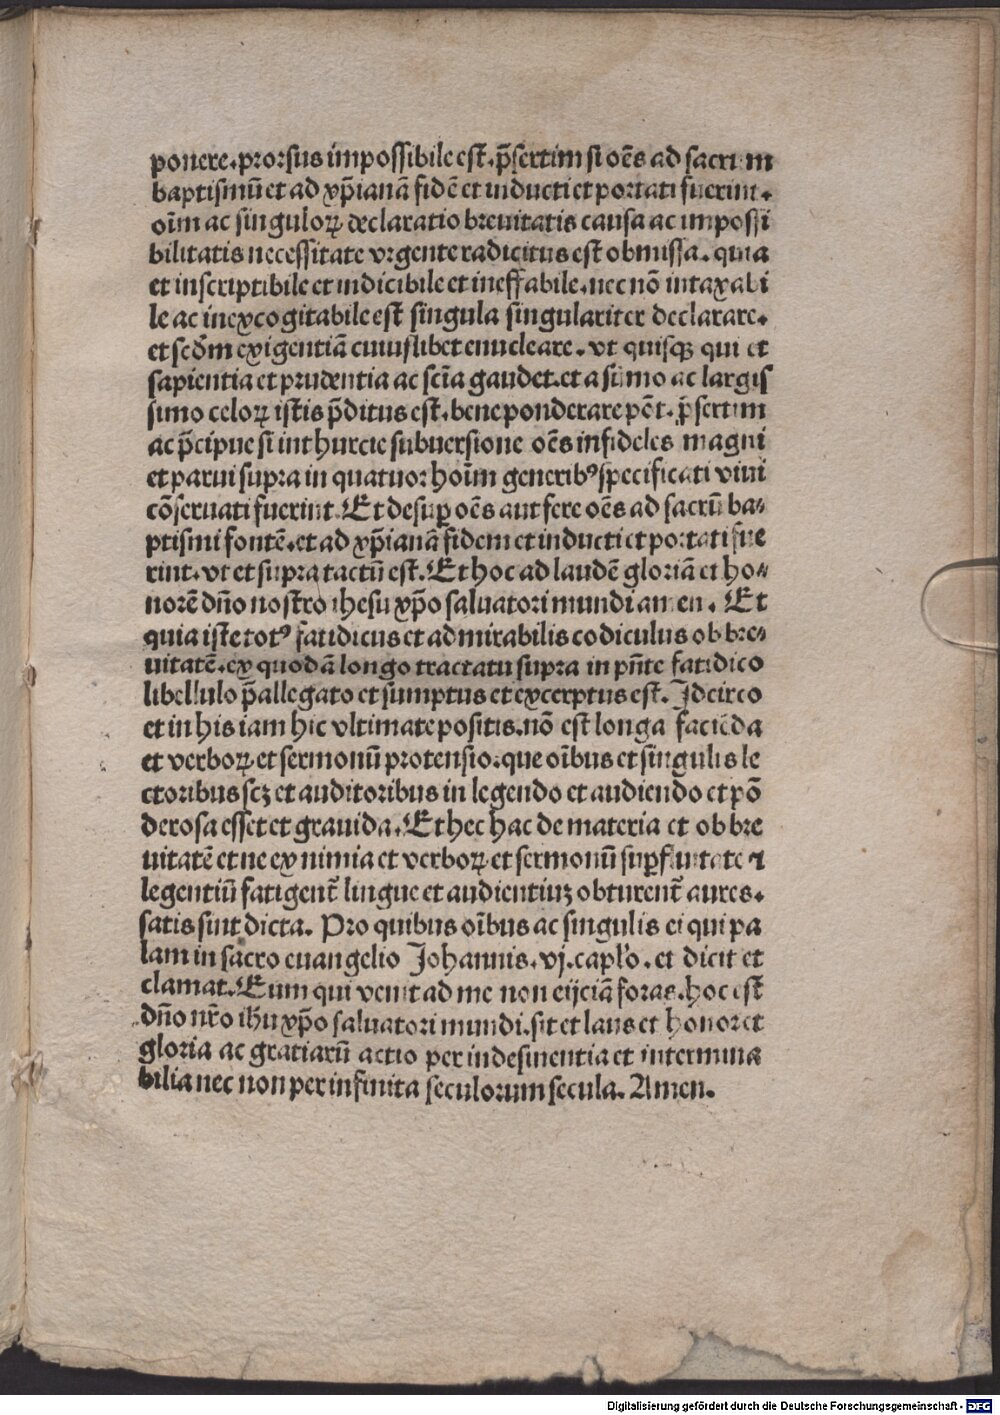 ponere.prorsus impossibile est.p̄sertim si oēs ad sacrum
baptismū et ad xp̄ianā fidē et inducti et portati fuerint.
oīm ac singuloꝝ declaratio breuitatis causa ac impossi
bilitatis necessitate vrgente radicitus est obmissa. quia
et inscriptibile et indicibile et ineffabile.nec nō intaxabi
le ac inexcogitabile est singula singulariter declarare.
et scd̄m exigentiā cuiuslibet enucleare. vt quisqꝫ qui et
sapientia et prudentia ac scīa gaudet.et a sūmo ac largis
simo celoꝝ istis p̄ditus est.bene ponderare pōt. p̄sertim
ac p̄cipue si in thurcie subuersione oēs infideles magni
et parui supra in quatuor hoīm generibꝰ specificati viui
cōseruati fuerint. Et desuꝑ oēs aut fere oēs ad sacrū ba⸗
ptismi fontē.et ad xp̄ianā fidem et inducti et portati fue
rint.vt et supra tactū est. Et hoc ad laudē gloriā et ho⸗
norē dn̄o nostro ihesu xp̄o saluatori mundi amen. Et
quia iste totꝰ fatidicus et admirabilis codiculus ob bre⸗
uitatē.ex quodā longo tractatu supra in pn̄te fatidico
libellulo p̄allegato et sumptus et excerptus est. Idcirco
et in his iam hic vltimate positis.nō est longa faciēda
et verboꝝ et sermonū protensio.que oībus et singulis le
ctoribus scꝫ et auditoribus in legendo et audiendo et pō
derosa esset et grauida. Et hec hac de materia et ob bre
uitatē et ne ex nimia et verboꝝ et sermonū suꝑfluitate ⁊
legentiū fatigent᷑ lingue et audientiuꝫ obturent᷑ aures.
satis sint dicta. Pro quibus oībus ac singulis ei qui pa
lam in sacro euangelio Johannis.vj.capl'o.et dicit et
clamat. Eum qui venit ad me non eijciā foras.hoc est
dn̄o nr̄o ihū xp̄o saluatori mundi.sit et laus et honor et
gloria ac gratiarū actio per indesinentia et intermina
bilia nec non per infinita seculorum secula. Amen.
Digitalisierung gefördert durch die Deutsche Forschungsgemeinschaft - DFG